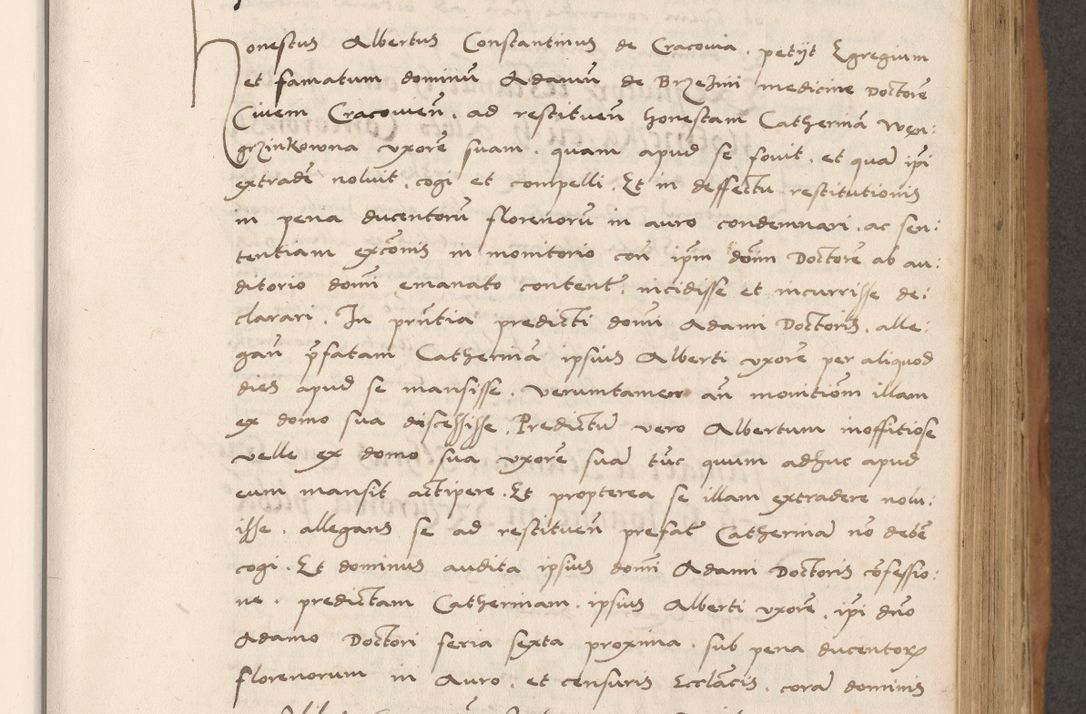 Honestus Albertus Constantinus de Cracouia. petijt Egregium
et famatum dominū Adamū de Brzezini medicine Doctorē
Ciuem Cracouień. ad restituen̄ honestam Catherinā Wen:
grzinkowna vxorē suam. quam apud se fouit. et quā ip̄i
extradē noluit. cogi et compelli. Et in deffectu restitutionis
in pena ducentorū florenorū in auro condemnari. ac sen:
tentiam exc̄onis in monitorio con̄ ip̄m dom̄ Doctorē ab au:
ditorio domī emanato content̄. incidisse et incurrisse de:
clarari. In pn̄tia predicti domī Adami Doctoris. alle:
gan̄ p̄fatam Catherinā ipsius Alberti vxorē per aliquod
dies apud se mansisse. verumtamen an̄ monitiōm illam
ex domo sua discessisse. Predictū vero Albertum inoffitiose
velle ex domo sua vxorē suā tūc quum adhuc apud
eum mansit accipere. Et propterea se illam extradere nolu:
isse. allegans se ad restituen̄ prefat̄ Catherinā nō debē
cogi. Et dominus audita ipsius domī Adami Doctoris cōfessio:
ne. predictam Catherinam. ipsius Alberti vxorē. ip̄i dn̄o
Adamo Doctori feria sexta proxima. sub pena ducentorꝝ
florenorum in Auro. et censuris Eccl̄acis. corā dominis